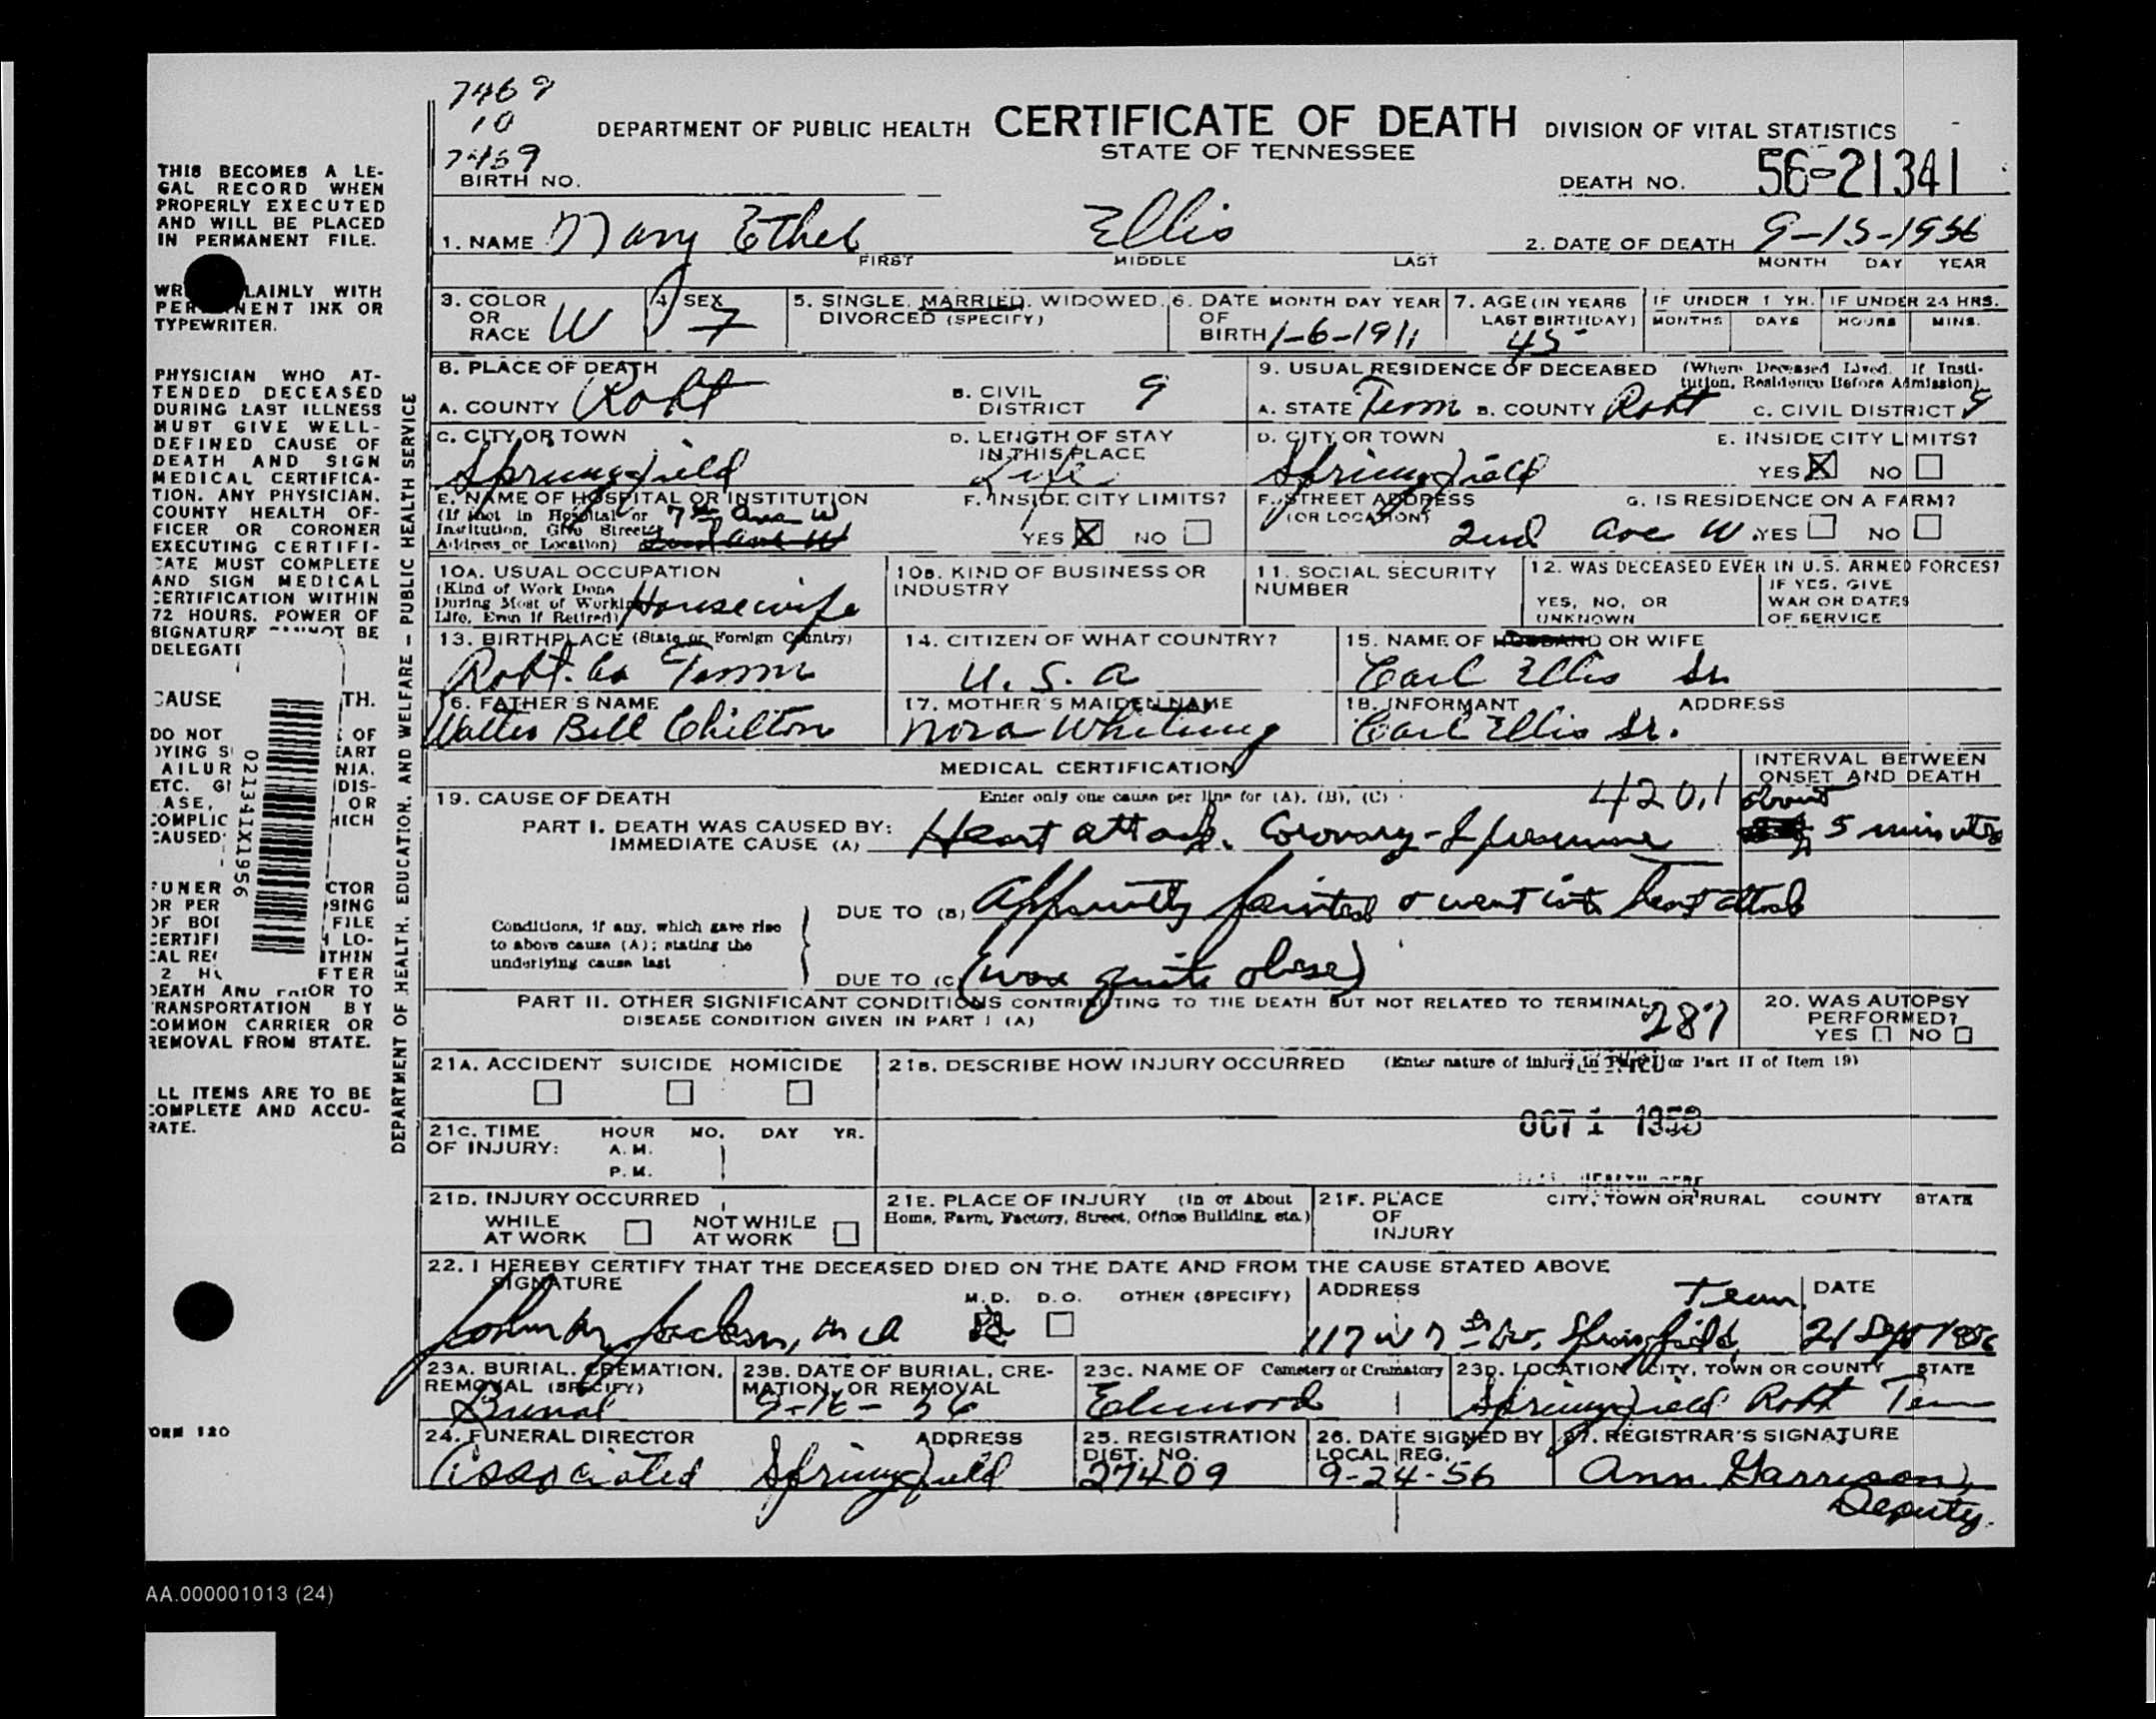 7469
10
7469
DEPARTMENT OF PUBLIC HEALTH CERTIFICATE OF DEATH DIVISION OF VITAL STATISTICS
STATE OF TENNESSEE
BIRTH NO. DEATH NO. 56-21341
1. NAME Mary Ethel Ellis 2. DATE OF DEATH 9-15-1956
FIRST MIDDLE LAST MONTH DAY YEAR
3. COLOR OR RACE W
4. SEX F
5. SINGLE, MARRIED, WIDOWED, DIVORCED (SPECIFY)
6. DATE OF BIRTH MONTH DAY YEAR 1-6-1911
7. AGE (IN YEARS LAST BIRTHDAY) 45
IF UNDER 1 YR. MONTHS DAYS
IF UNDER 24 HRS. HOURS MINS.
8. PLACE OF DEATH
A. COUNTY Robt
B. CIVIL DISTRICT 9
9. USUAL RESIDENCE OF DECEASED (Where Deceased Lived. If Institution, Residence Before Admission)
A. STATE Tenn B. COUNTY Robt C. CIVIL DISTRICT 9
C. CITY OR TOWN Springfield
D. LENGTH OF STAY IN THIS PLACE Life
D. CITY OR TOWN Springfield
E. INSIDE CITY LIMITS? YES X NO
E. NAME OF HOSPITAL OR INSTITUTION
(If not in Hospital or Institution, Give Street Address or Location) 7th Ave W
F. INSIDE CITY LIMITS? YES X NO
F. STREET ADDRESS (OR LOCATION) 2nd Ave W
G. IS RESIDENCE ON A FARM? YES NO
10A. USUAL OCCUPATION
(Kind of Work Done During Most of Working Life, Even If Retired) Housewife
10B. KIND OF BUSINESS OR INDUSTRY
11. SOCIAL SECURITY NUMBER
12. WAS DECEASED EVER IN U.S. ARMED FORCES?
YES, NO, OR UNKNOWN
IF YES, GIVE WAR OR DATES OF SERVICE
13. BIRTHPLACE (State or Foreign Country) Robt. Co Tenn
14. CITIZEN OF WHAT COUNTRY? U. S. A
15. NAME OF HUSBAND OR WIFE Earl Ellis Sr
16. FATHER'S NAME Walter Bell Chilton
17. MOTHER'S MAIDEN NAME Nora Whiting
18. INFORMANT ADDRESS Earl Ellis Sr.
MEDICAL CERTIFICATION
INTERVAL BETWEEN ONSET AND DEATH
19. CAUSE OF DEATH Enter only one cause per line for (A), (B), (C) 420.1
about 5 minutes
PART I. DEATH WAS CAUSED BY:
IMMEDIATE CAUSE (A) Heart attack. Coronary - I presume
DUE TO (B) Apparently fainted & went into heart attack
Conditions, if any, which gave rise to above cause (A); stating the underlying cause last
DUE TO (C) (was quite obese)
PART II. OTHER SIGNIFICANT CONDITIONS CONTRIBUTING TO THE DEATH BUT NOT RELATED TO TERMINAL DISEASE CONDITION GIVEN IN PART I (A) 287
20. WAS AUTOPSY PERFORMED?
YES NO
21A. ACCIDENT SUICIDE HOMICIDE
21B. DESCRIBE HOW INJURY OCCURRED (Enter nature of injury in Part I or Part II of Item 19)
OCT 1
21C. TIME OF INJURY: HOUR MO. DAY YR.
A.M.
P.M.
21D. INJURY OCCURRED
WHILE AT WORK NOT WHILE AT WORK
21E. PLACE OF INJURY (In or About Home, Farm, Factory, Street, Office Building, etc.)
21F. PLACE OF INJURY CITY, TOWN OR RURAL COUNTY STATE
22. I HEREBY CERTIFY THAT THE DECEASED DIED ON THE DATE AND FROM THE CAUSE STATED ABOVE
SIGNATURE M.D. D.O. OTHER (SPECIFY) ADDRESS DATE
Jackson, M D 117 W 7th Av, Springfield, Tenn. 21 Sept 1956
23A. BURIAL, CREMATION, REMOVAL (SPECIFY) Burial
23B. DATE OF BURIAL, CREMATION, OR REMOVAL 9-16-56
23C. NAME OF Cemetery or Crematory Elmwood
23D. LOCATION CITY, TOWN OR COUNTY STATE Springfield Robt Tenn
24. FUNERAL DIRECTOR ADDRESS Associated Springfield
25. REGISTRATION DIST. NO. 27409
26. DATE SIGNED BY LOCAL REG. 9-24-56
27. REGISTRAR'S SIGNATURE Ann Garrison, Deputy.
THIS BECOMES A LE-
GAL RECORD WHEN
PROPERLY EXECUTED
AND WILL BE PLACED
IN PERMANENT FILE.
WR LAINLY WITH
PER NENT INK OR
TYPEWRITER.
PHYSICIAN WHO AT-
TENDED DECEASED
DURING LAST ILLNESS
MUST GIVE WELL-
DEFINED CAUSE OF
DEATH AND SIGN
MEDICAL CERTIFICA-
TION. ANY PHYSICIAN,
COUNTY HEALTH OF-
FICER OR CORONER
EXECUTING CERTIFI-
CATE MUST COMPLETE
AND SIGN MEDICAL
CERTIFICATION WITHIN
72 HOURS. POWER OF
SIGNATURE CANNOT BE
DELEGAT
CAUSE TH.
DO NOT OF
YING S EART
AILUR NIA,
ETC. GI DIS-
ASE, OR
COMPLIC HICH
CAUSED
021341X1956
FUNER CTOR
OR PER SING
OF BO FILE
CERTIFI LO-
CAL RE ITHIN
2 H FTER
DEATH AND PRIOR TO
TRANSPORTATION BY
COMMON CARRIER OR
REMOVAL FROM STATE.
LL ITEMS ARE TO BE
COMPLETE AND ACCU-
RATE.
ORM 120
DEPARTMENT OF HEALTH, EDUCATION, AND WELFARE - PUBLIC HEALTH SERVICE
AA.000001013 (24)